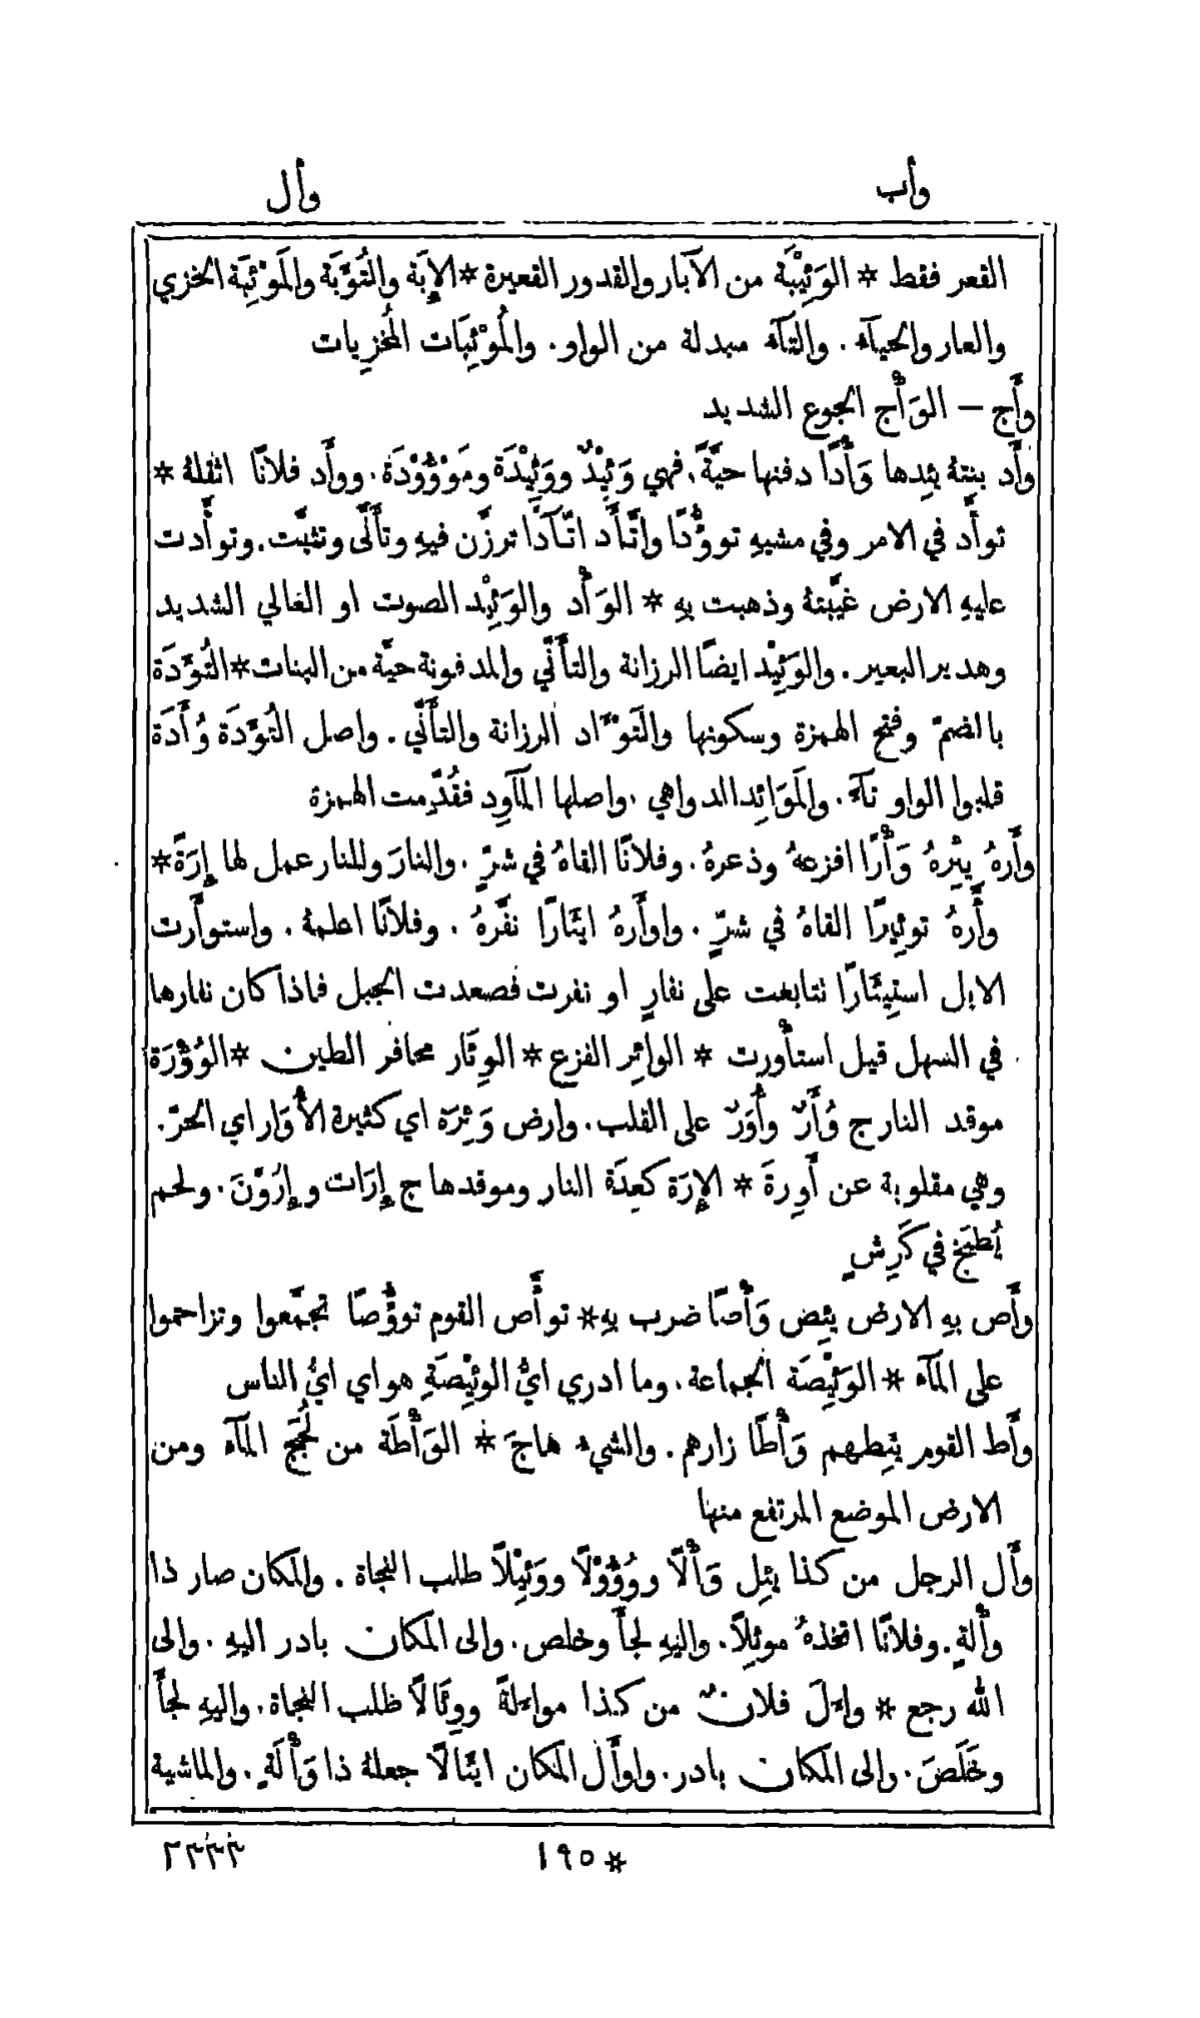 وأب
وأل
القعر فقط * الوَئِيْبَة من الآبار والقدور القعيرة * الإِبَة والتُوَّبَة والمَوْئِبَة الخزي
والعار والحيآء . والتآء مبدلة من الواو . والمُوْئِبَات المُخزِيات
وأَج — الوَأْج الجوع الشديد
وأَد بنتهُ يئِدها وَأْدًا دفنها حيَّةً . فهي وَئِيْدٌ ووَئِيْدَة ومَوْؤُوْدَة . ووأَد فلانًا اثقلهُ *
توأَّد في الامر وفي مشيهِ توؤُّدًا واتَّأَد اتّـآدًا ترزَّن فيهِ وتأَنَّى وتثبَّت . وتوأَّدت
عليهِ الارض غيَّبتهُ وذهبت بهِ * الوَأْد والوَئِيْد الصوت او العالي الشديد
وهدير البعير . والوَئِيْد ايضًا الرزانة والتأَنِّي والمدفونة حيَّة من البنات * التُوَّدَة
بالضمّ وفتح الهمزة وسكونها والتَوْآد الرزانة والتأَنِّي . واصل التُوَّدَة وُأَدَة
قلبوا الواو تآء . والمَوَائِد الدواهي . واصلها المآوِد فقُدِّمت الهمزة
وأَرهُ يئِرهُ وَأْرًا افزعهُ وذعرهُ . وفلانًا القاهُ في شرٍّ . والنارَ وللنار عمل لها إِرَةً *
وأَّرهُ توئِيرًا القاهُ في شرٍّ . واوأَرهُ ايئَارًا نفَّرهُ . وفلانًا اعلمهُ . واستوأَرت
الابل استِيئَارًا تتابعت على نفارٍ او نفرت فصعدت الجبل فاذا كان نفارها
في السهل قيل استأْورت * الوائِر الفزع * الوِئَار محافر الطين * الوُؤْرَة
موقد النار ج وُأَرٌ وأُوَرٌ على القلب . وارض وَئِرَة اي كثيرة الأُوَار اي الحرّ .
وهي مقلوبة عن أَوِرةَ * الإِرَة كعِدَة النار وموقدها ج إِرَات وإِرُوْنَ . ولحم
يُطبَخ في كَرِشٍ
وأَص بهِ الارض يئِص وَأْصًا ضرب بهِ * توأَّص القوم توؤُّصًا تجمَّعوا وتزاحموا
على المآء * الوَئِيْصَة الجماعة . وما ادري ايُّ الوئِيْصَةِ هو اي ايُّ الناس
وأَط القوم يئِطهم وَأْطًا زارهم . والشيء هاجَ * الوَأْطَة من لُجَج المآء ومن
الارض الموضع المرتفع منها
وأَل الرجل من كذا يئِل وَأْلًا ووُؤُوْلًا ووَئِيْلًا طلب النجاة . والمكان صار ذا
وأْلةٍ . وفلانًا اتخذهُ موئِلًا . واليهِ لجأَ وخلص . والى المكان بادر اليهِ . والى
الله رجع * واءَلَ فلانٌ من كذا مواءَلةً ووِئَالًا طلب النجاة . واليهِ لجأَ
وخَلَصَ . والى المكان بادر . واوأَل المكان ايئَالًا جعلهُ ذا وَأْلَةٍ . والماشية
* ١٩٥
٢٣٣٣